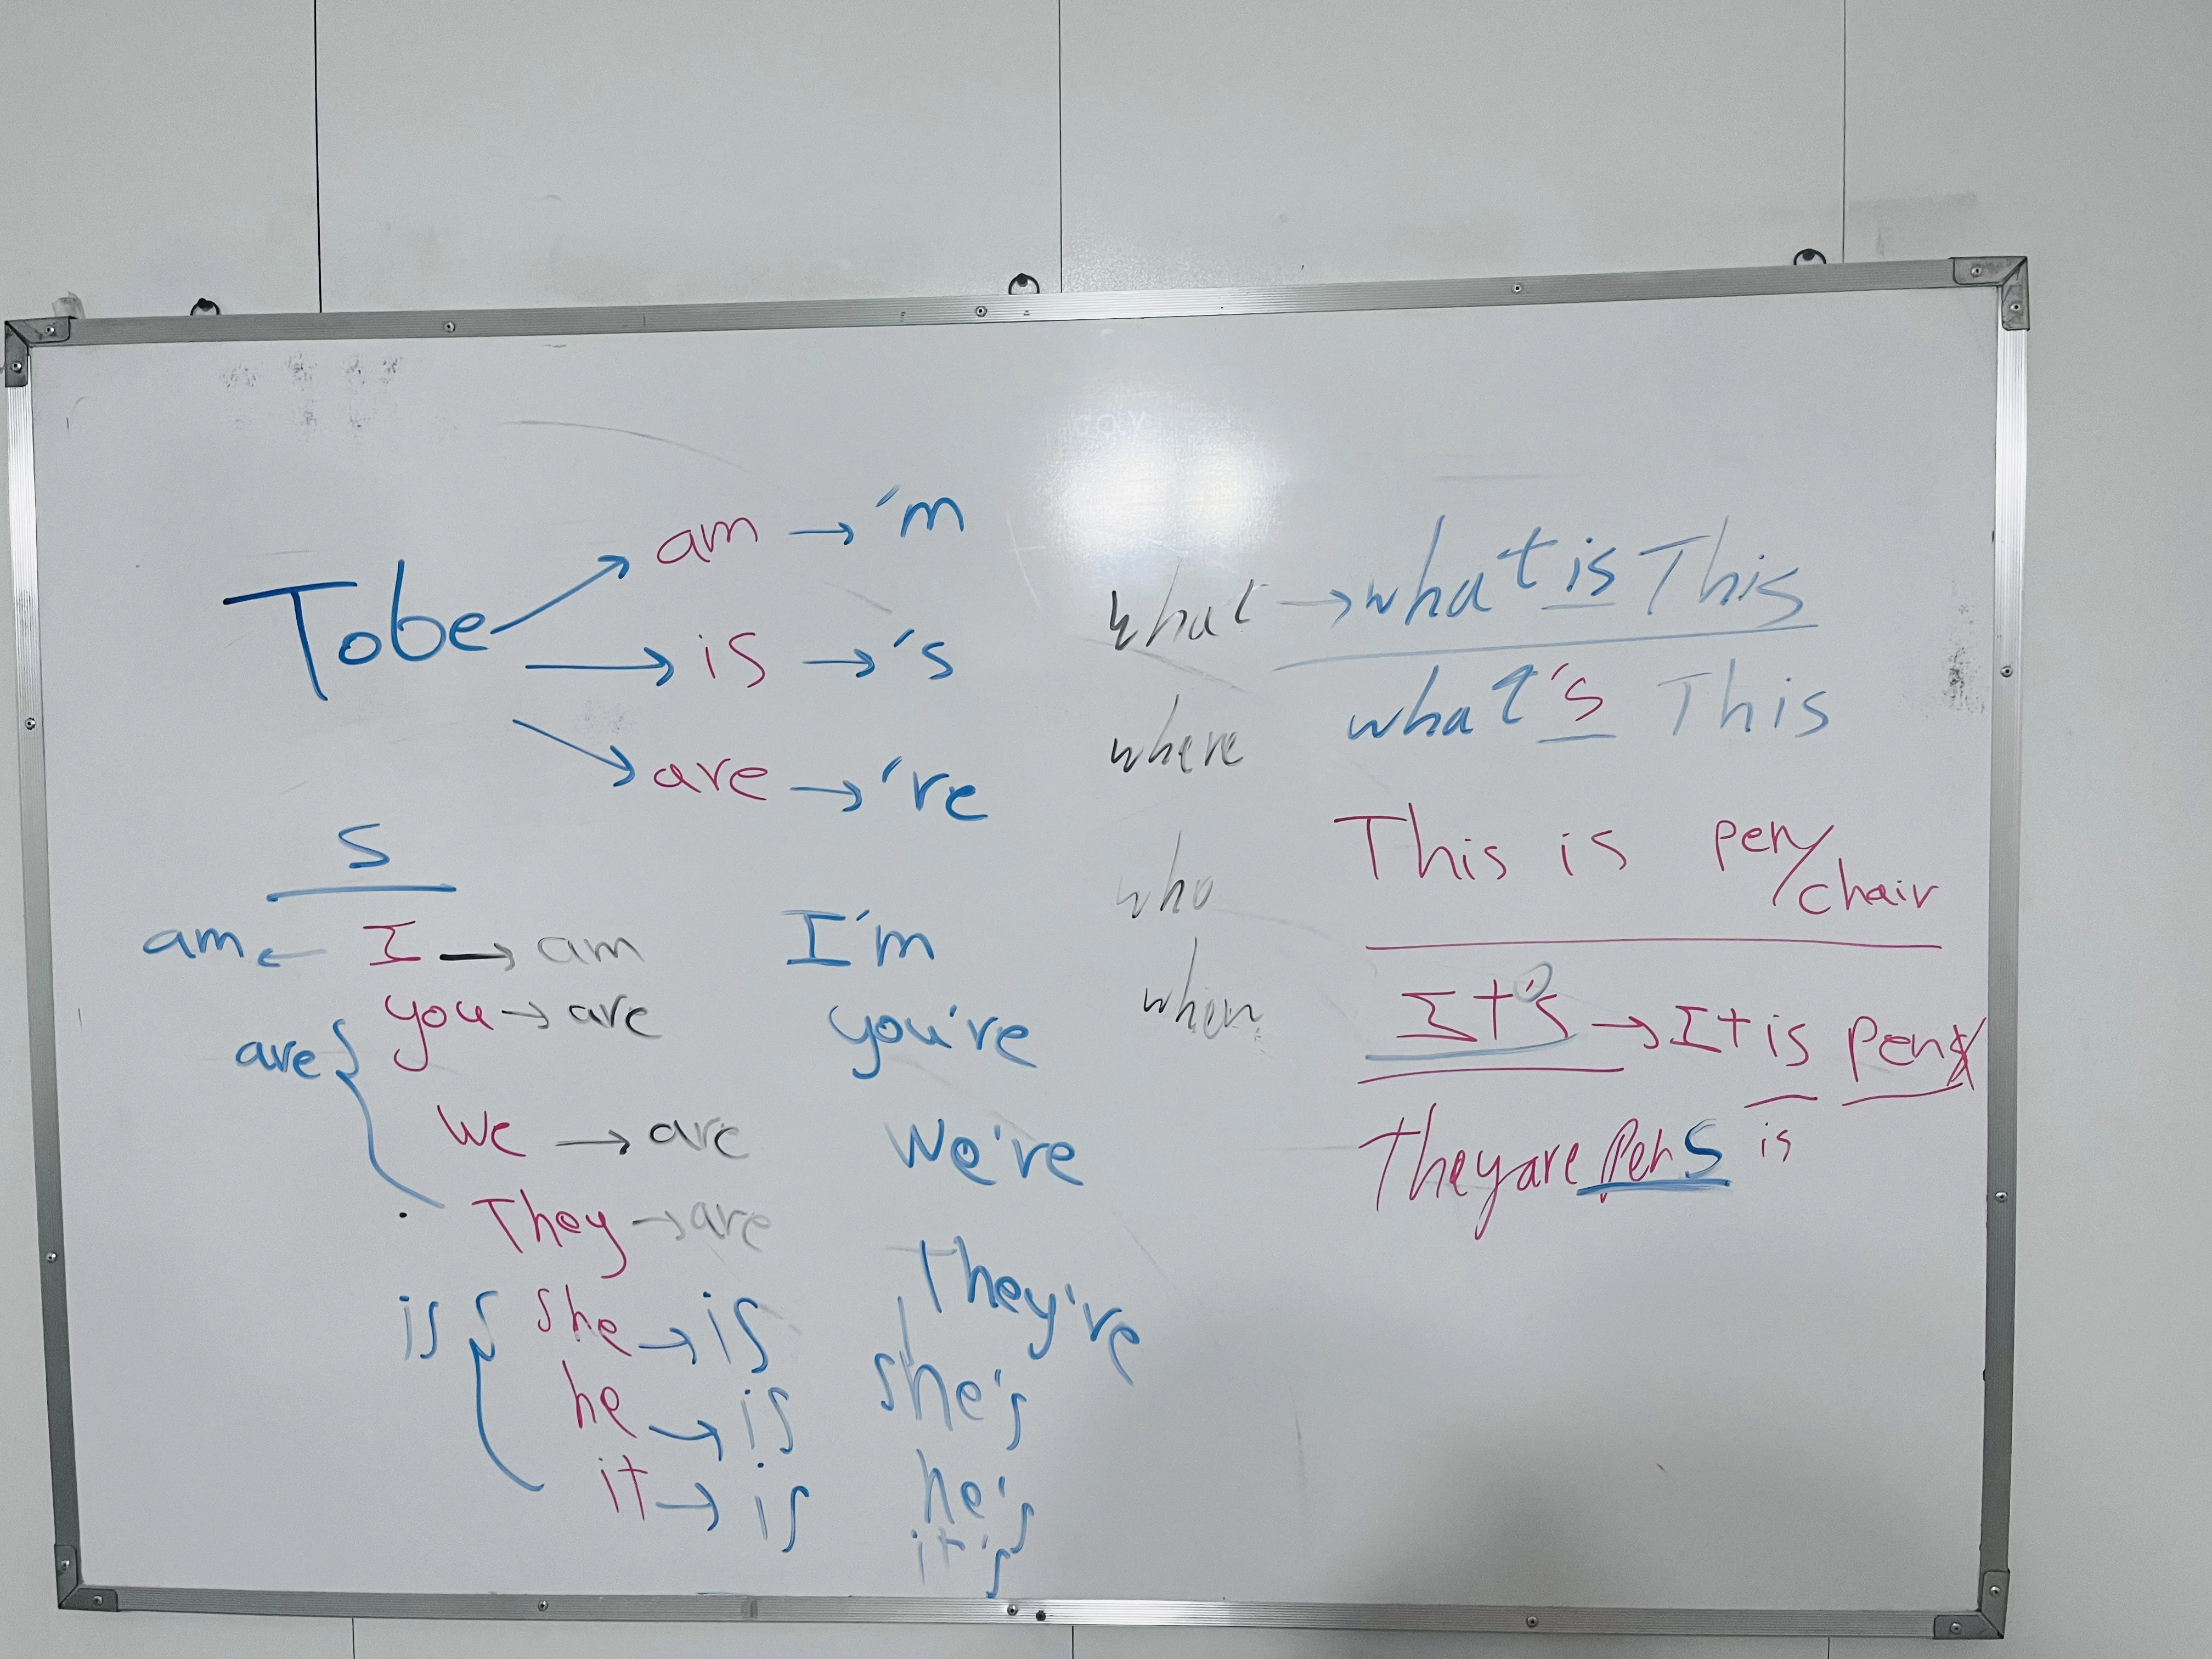 To be
am → 'm
is → 's
are → 're
S
am ← I → am I'm
are { you → are you're
We → are We're
They → are They're
is { she → is she's
he → is he's
it → is it's
what → what is This
what's This
where
who
when
This is pen/chair
It's → It is pens
is
They are pens